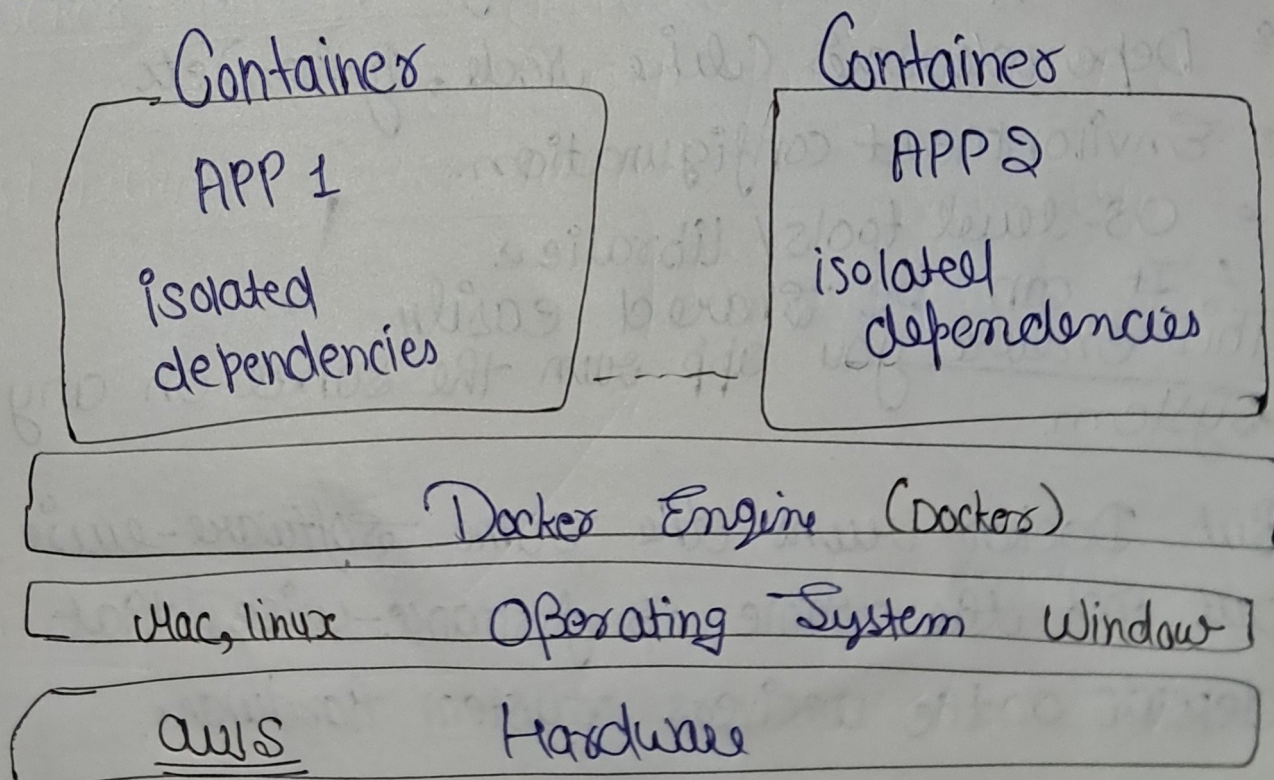 Container
APP 1
isolated
dependencies
Container
APP 2
isolated
dependencies
Docker Engine (Docker)
Mac, linux Operating System Window
aws Hardware